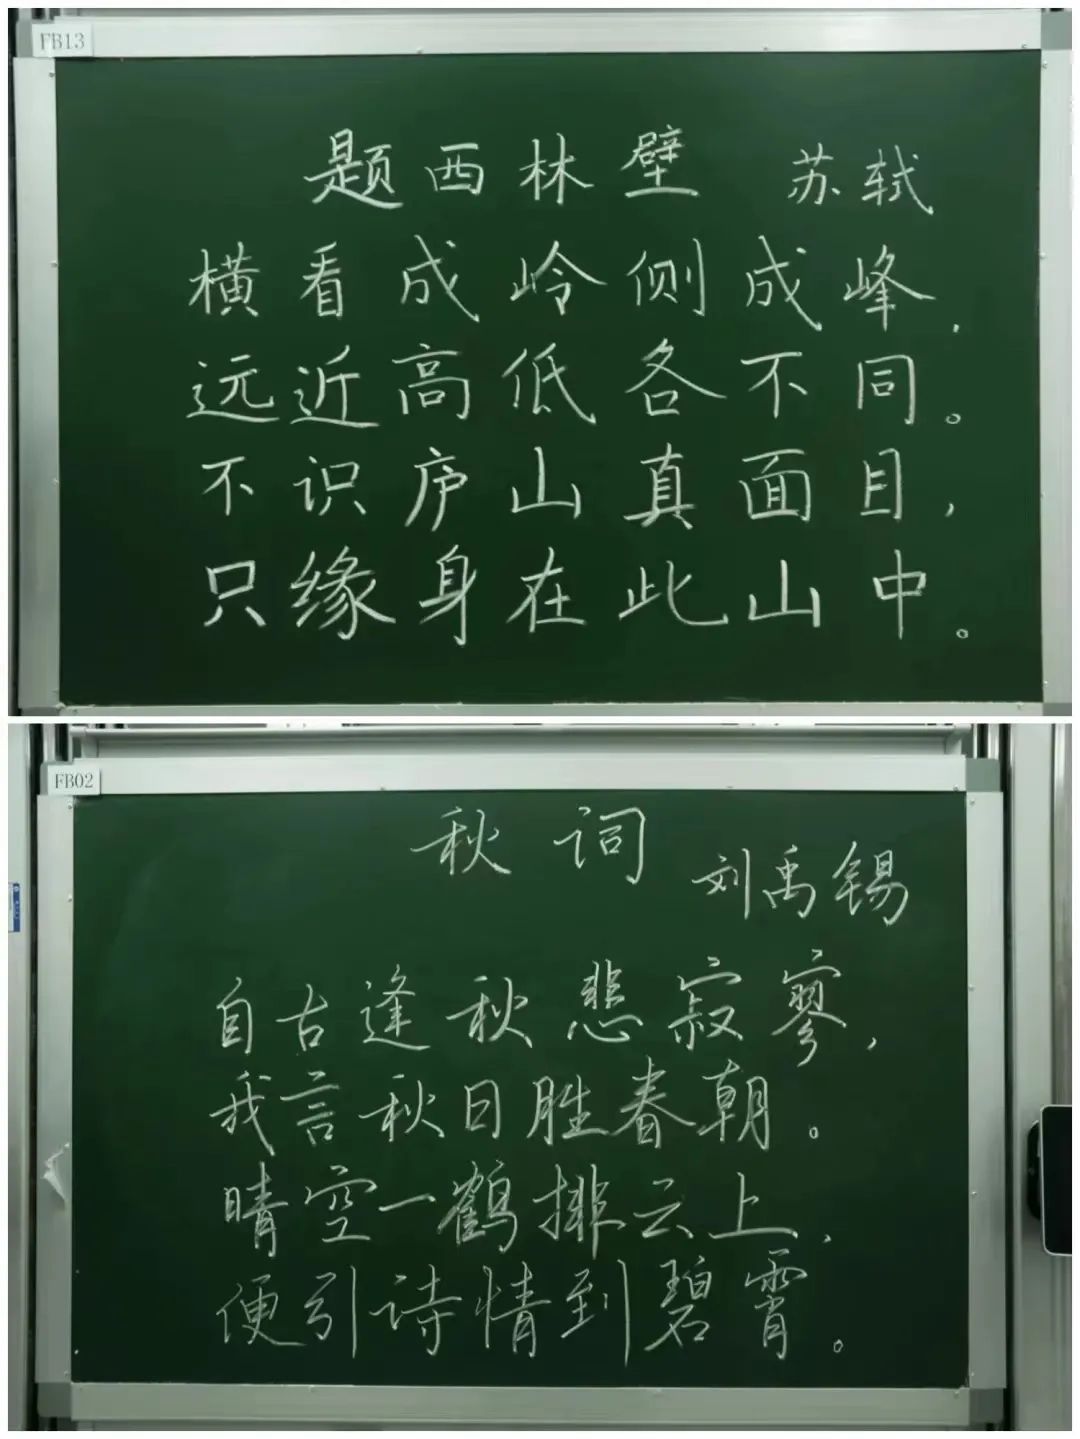 FB13
题西林壁 苏轼
横看成岭侧成峰，
远近高低各不同。
不识庐山真面目，
只缘身在此山中。
FB02
秋词
刘禹锡
自古逢秋悲寂寥，
我言秋日胜春朝。
晴空一鹤排云上，
便引诗情到碧霄。